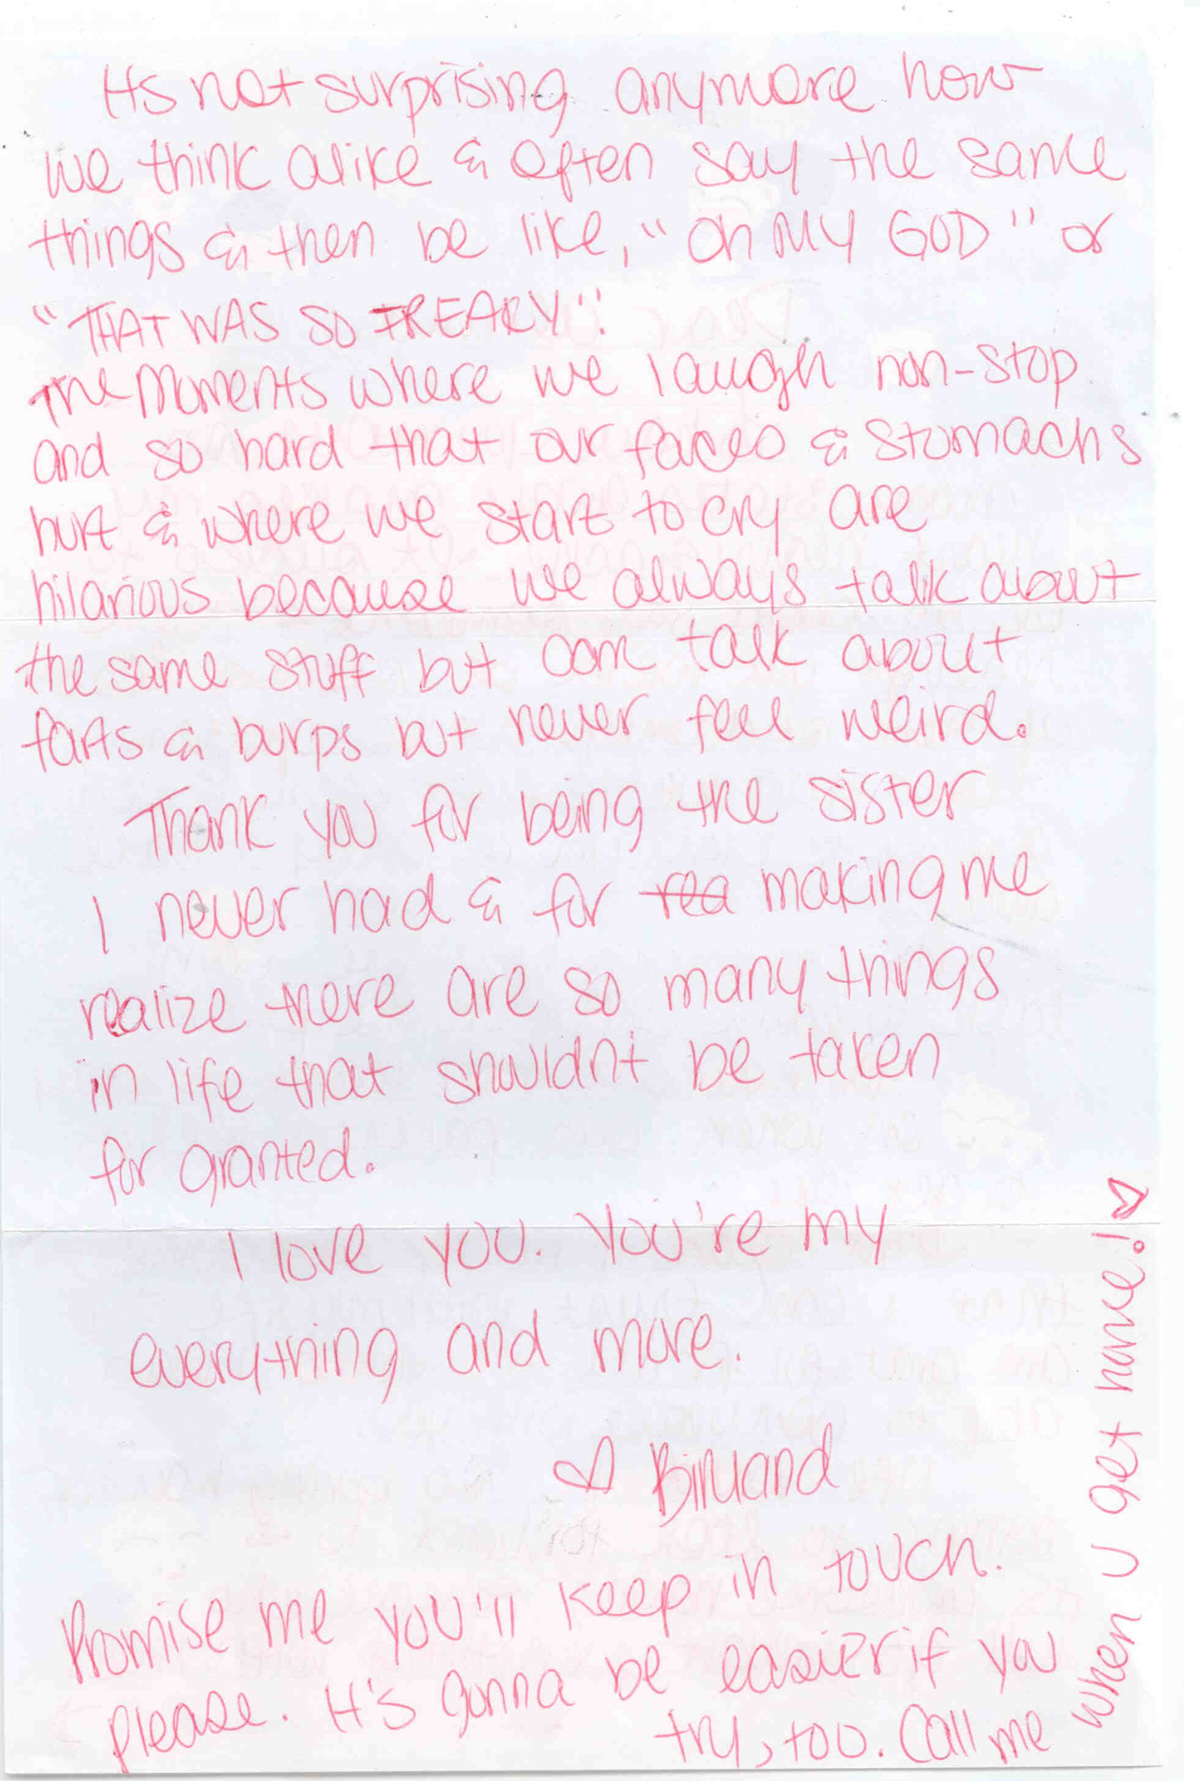 Its not surprising anymore how
we think alike & often say the same
things & then be like, "OH MY GOD" or
"THAT WAS SO FREAKY".
The moments where we laugh non-stop
and so hard that our faces & stomachs
hurt & where we start to cry are
hilarious because we always talk about
the same stuff but can talk about
farts & burps but never feel weird.
Thank you for being the sister
I never had & for rea making me
realize there are so many things
in life that shouldnt be taken
for granted.
I love you. You're my
everything and more.
♡
Promise me you'll keep in touch.
please. It's gonna be easier if you
try, too. Call me
when U get home! ♡